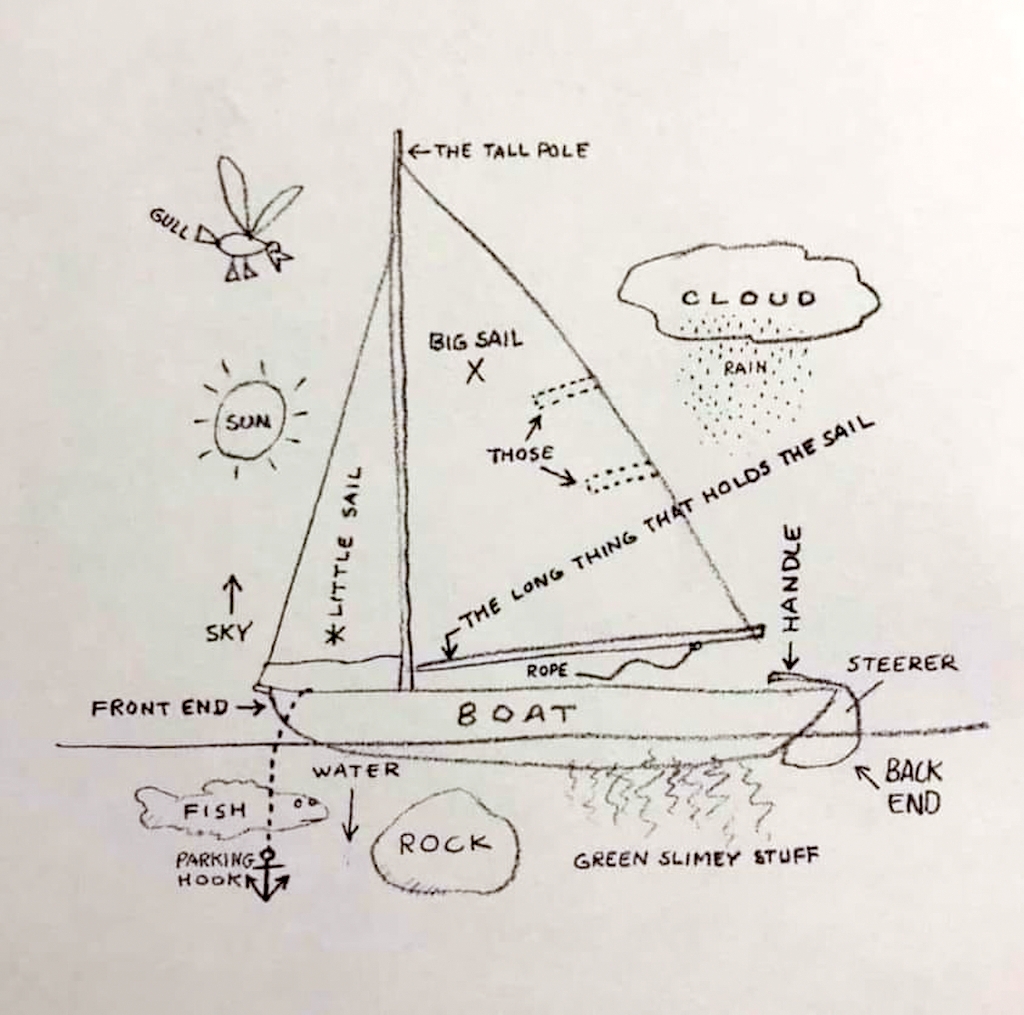 THE TALL POLE
GULL
CLOUD
RAIN
BIG SAIL
X
SUN
THOSE
THE LONG THING THAT HOLDS THE SAIL
LITTLE SAIL
HANDLE
SKY
ROPE
STEERER
FRONT END
BOAT
WATER
BACK
END
FISH
ROCK
PARKING
HOOK
GREEN SLIMEY STUFF